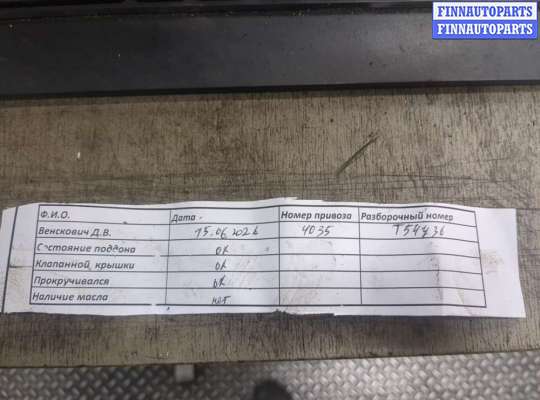 FINNAUTOPARTS
FINNAUTOPARTS
Ф.И.О. Дата - Номер привоза Разборочный номер
Венскович Д.В. 15.06.2026 4035
Состояние поддона ок
Клапанной крышки ок
Прокручивался ок
Наличие масла нет